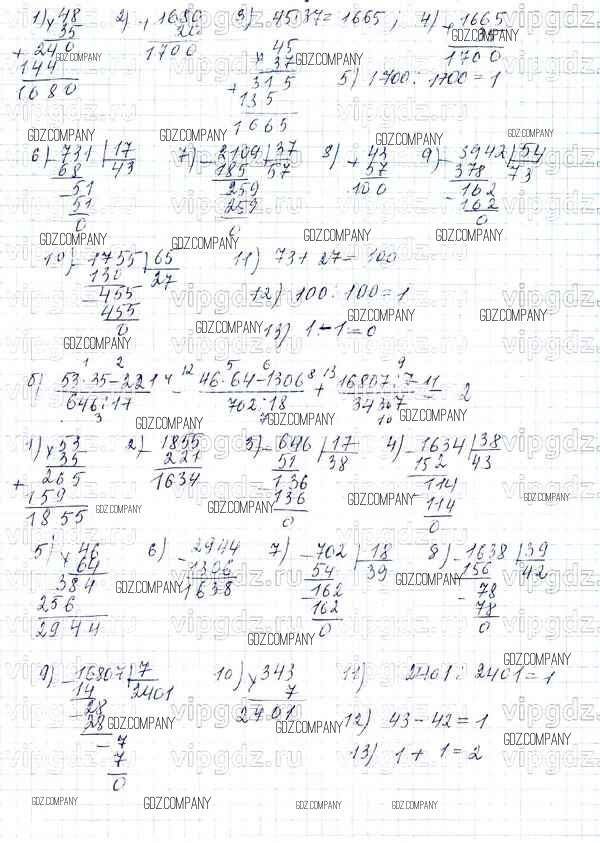 1) × 48 2) + 1680 3) 45·37 = 1665 ; 4) + 1665
35 20 35
+ 240 1700 × 45 1700
144 37 5) 1700 : 1700 = 1
1680 + 315
135
1665
6) − 731 | 17 7) − 2109 | 37 8) + 43 9) − 3942 | 54
68 43 185 57 57 378 73
− 51 − 259 100 − 162
51 259 162
0 0 0
10) − 1755 | 65 11) 73 + 27 = 100
130 27
− 455 12) 100 : 100 = 1
455
0 13) 1 − 1 = 0
1 2 12 5 6 8 13 9
б) 53·35−221 4 − 46·64−1306 + 16807:7 11 = 2
646:17 702:18 343·7
3 7 10
1) × 53 2) − 1855 3) − 646 | 17 4) − 1634 | 38
35 221 51 38 152 43
+ 265 1634 − 136 − 114
159 136 114
1855 0 0
5) × 46 6) − 2944 7) − 702 | 18 8) − 1638 | 39
64 1306 54 39 156 42
384 1638 − 162 − 78
256 162 78
2944 0 0
9) − 16807 | 7 10) × 343 11) 2401 : 2401 = 1
14 2401 7
− 28 2401 12) 43 − 42 = 1
28
− 7 13) 1 + 1 = 2
7
0
GDZ.COMPANY
vipgdz.ru